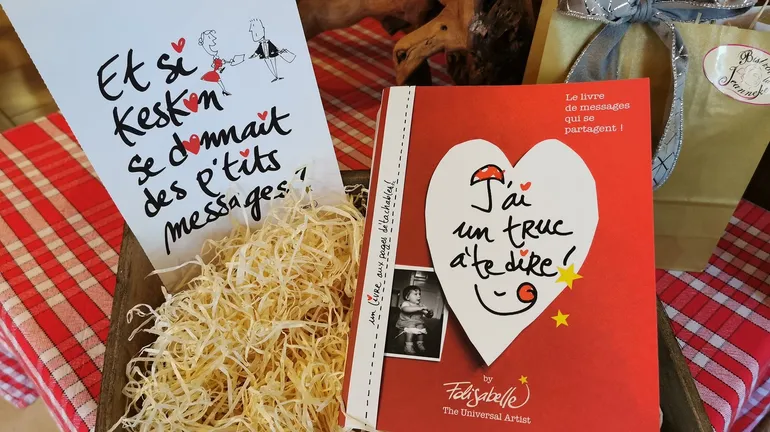 Et si
Keskon
se donnait
des p'tits
messages?
Le livre
de messages
qui se
partagent !
un livre aux pages détachables!
J'ai
un truc
à te dire !
by
Folisabelle
The Universal Artist
Jeannette